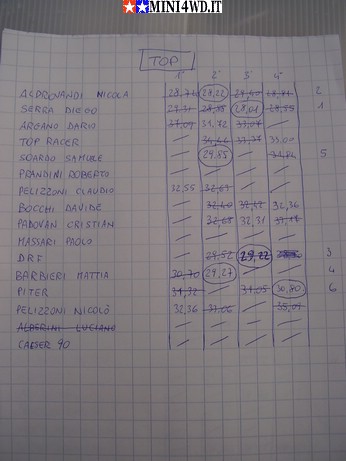 MINI4WD.IT
TOP
1° 2° 3° 4°
ALDROVANDI NICOLA 29,22 2
SERRA DIEGO 29,31 28,01 1
ARGANO DARIO 37,09 31,72 33,07 —
TOP RACER — 33,00
SOARDO SAMUELE — 29,85 — 5
PRANDINI ROBERTO — — — —
PELIZZONI CLAUDIO 32,55 32,63 — —
BOCCHI DAVIDE — 32,40 32,42 32,36
PADOVAN CRISTIAN — 32,68 32,31
MASSARI PAOLO — — — —
DRF — 29,52 29,22 3
BARBIERI MATTIA 30,70 29,27 — — 4
PITER 34,72 — 34,05 30,80 6
PELIZZONI NICOLÒ 32,36 33,06 — 35,01
ALBERINI LUCIANO — — — —
CAESER 90 — — — —